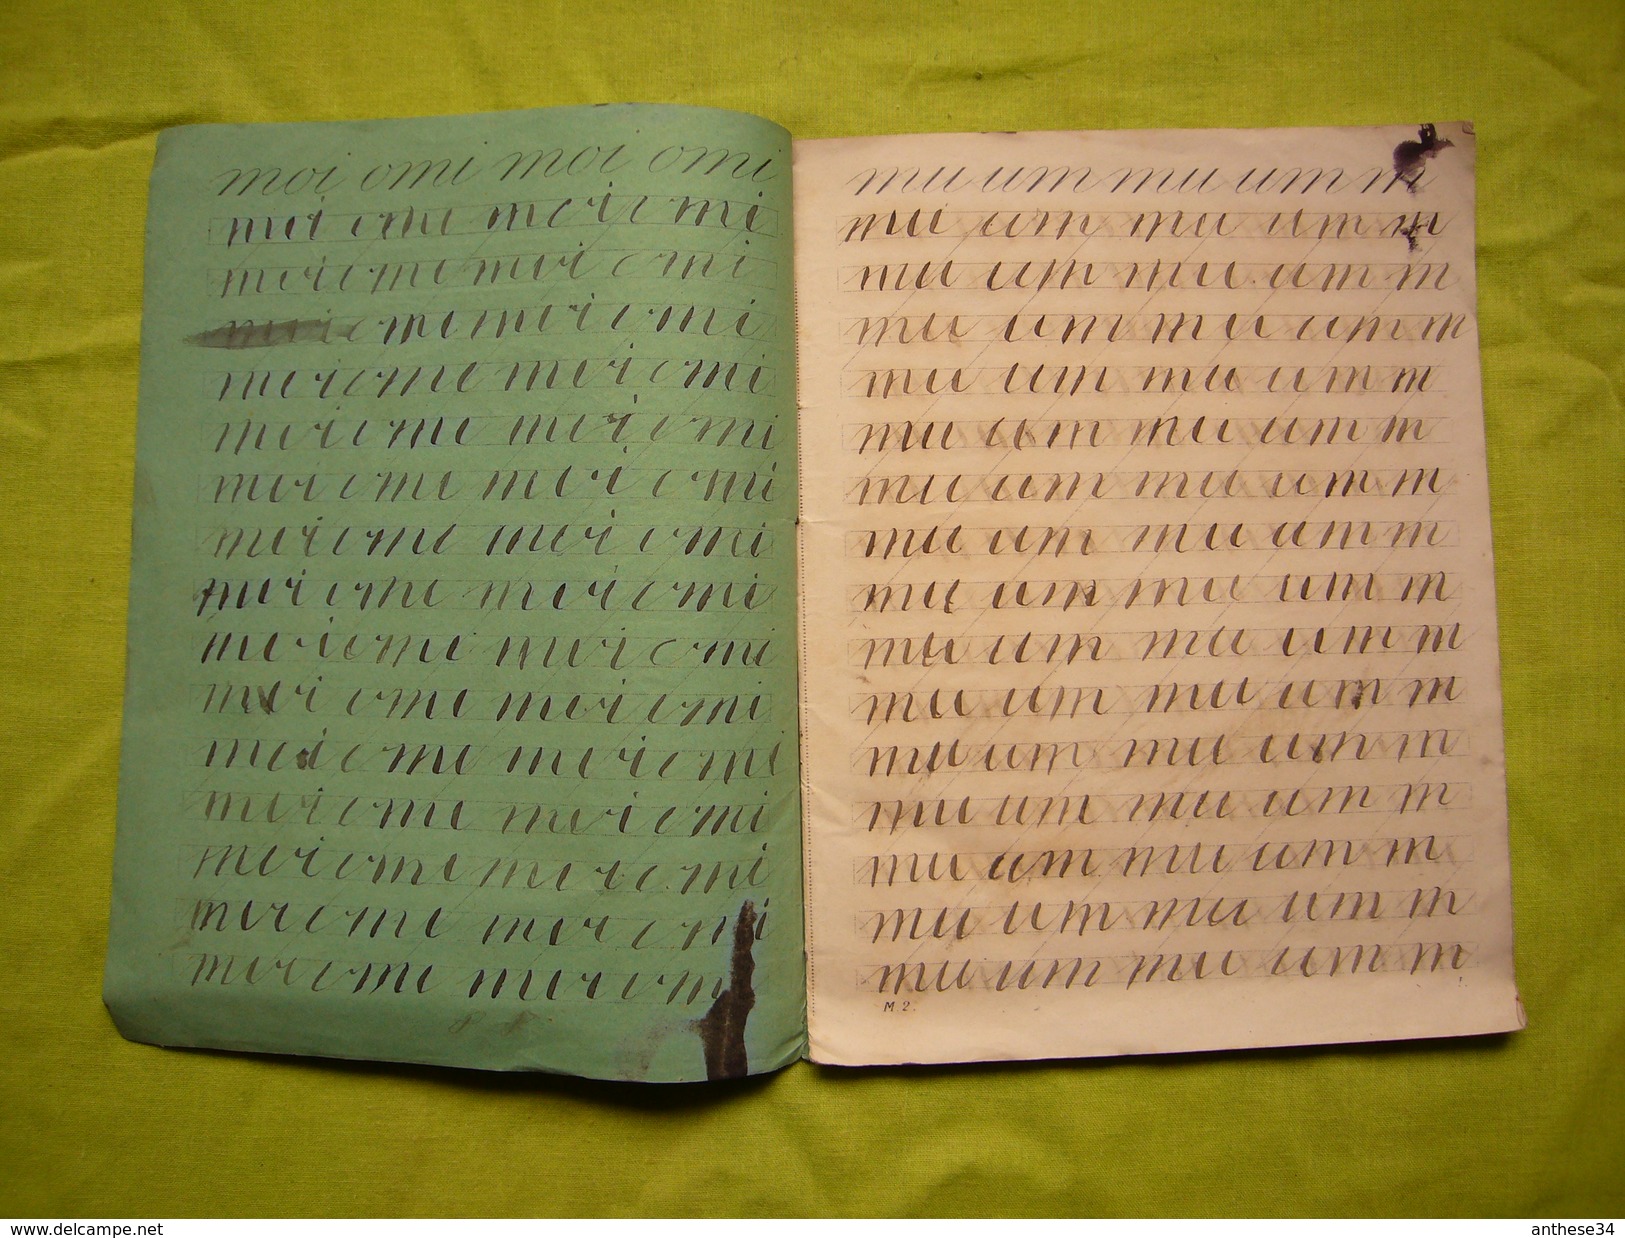 moi omi moi omi
moi omi moi omi
moi omi moi omi
moi omi moi omi
moi omi moi omi
moi omi moi omi
moi omi moi omi
moi omi moi omi
moi omi moi omi
moi omi moi omi
moi omi moi omi
moi omi moi omi
moi omi moi omi
moi omi moi omi
moi omi moi omi
moi omi moi om
mu um mu um m
mu um mu um m
mu um mu um m
mu um mu um m
mu um mu um m
mu um mu um m
mu um mu um m
mu um mu um m
mu um mu um m
mu um mu um m
mu um mu um m
mu um mu um m
mu um mu um m
mu um mu um m
mu um mu um m
mu um mu um m
M. 2.
www.delcampe.net
anthese34